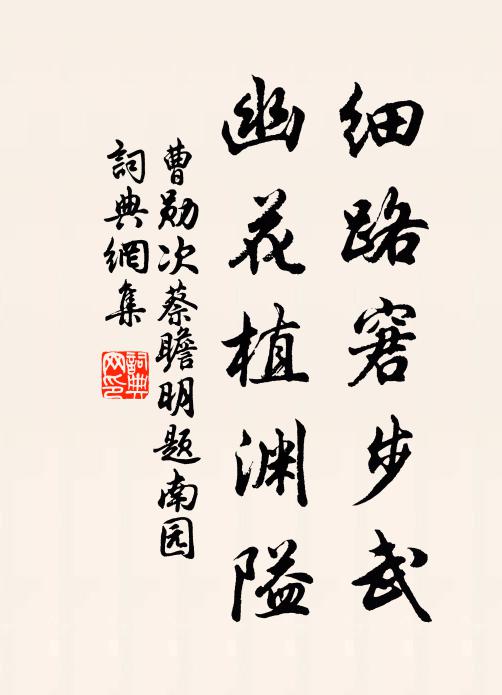 细路窘步武
幽花植渊隘
曹勋次蔡瞻明题南园
詞典網集
詞典网印